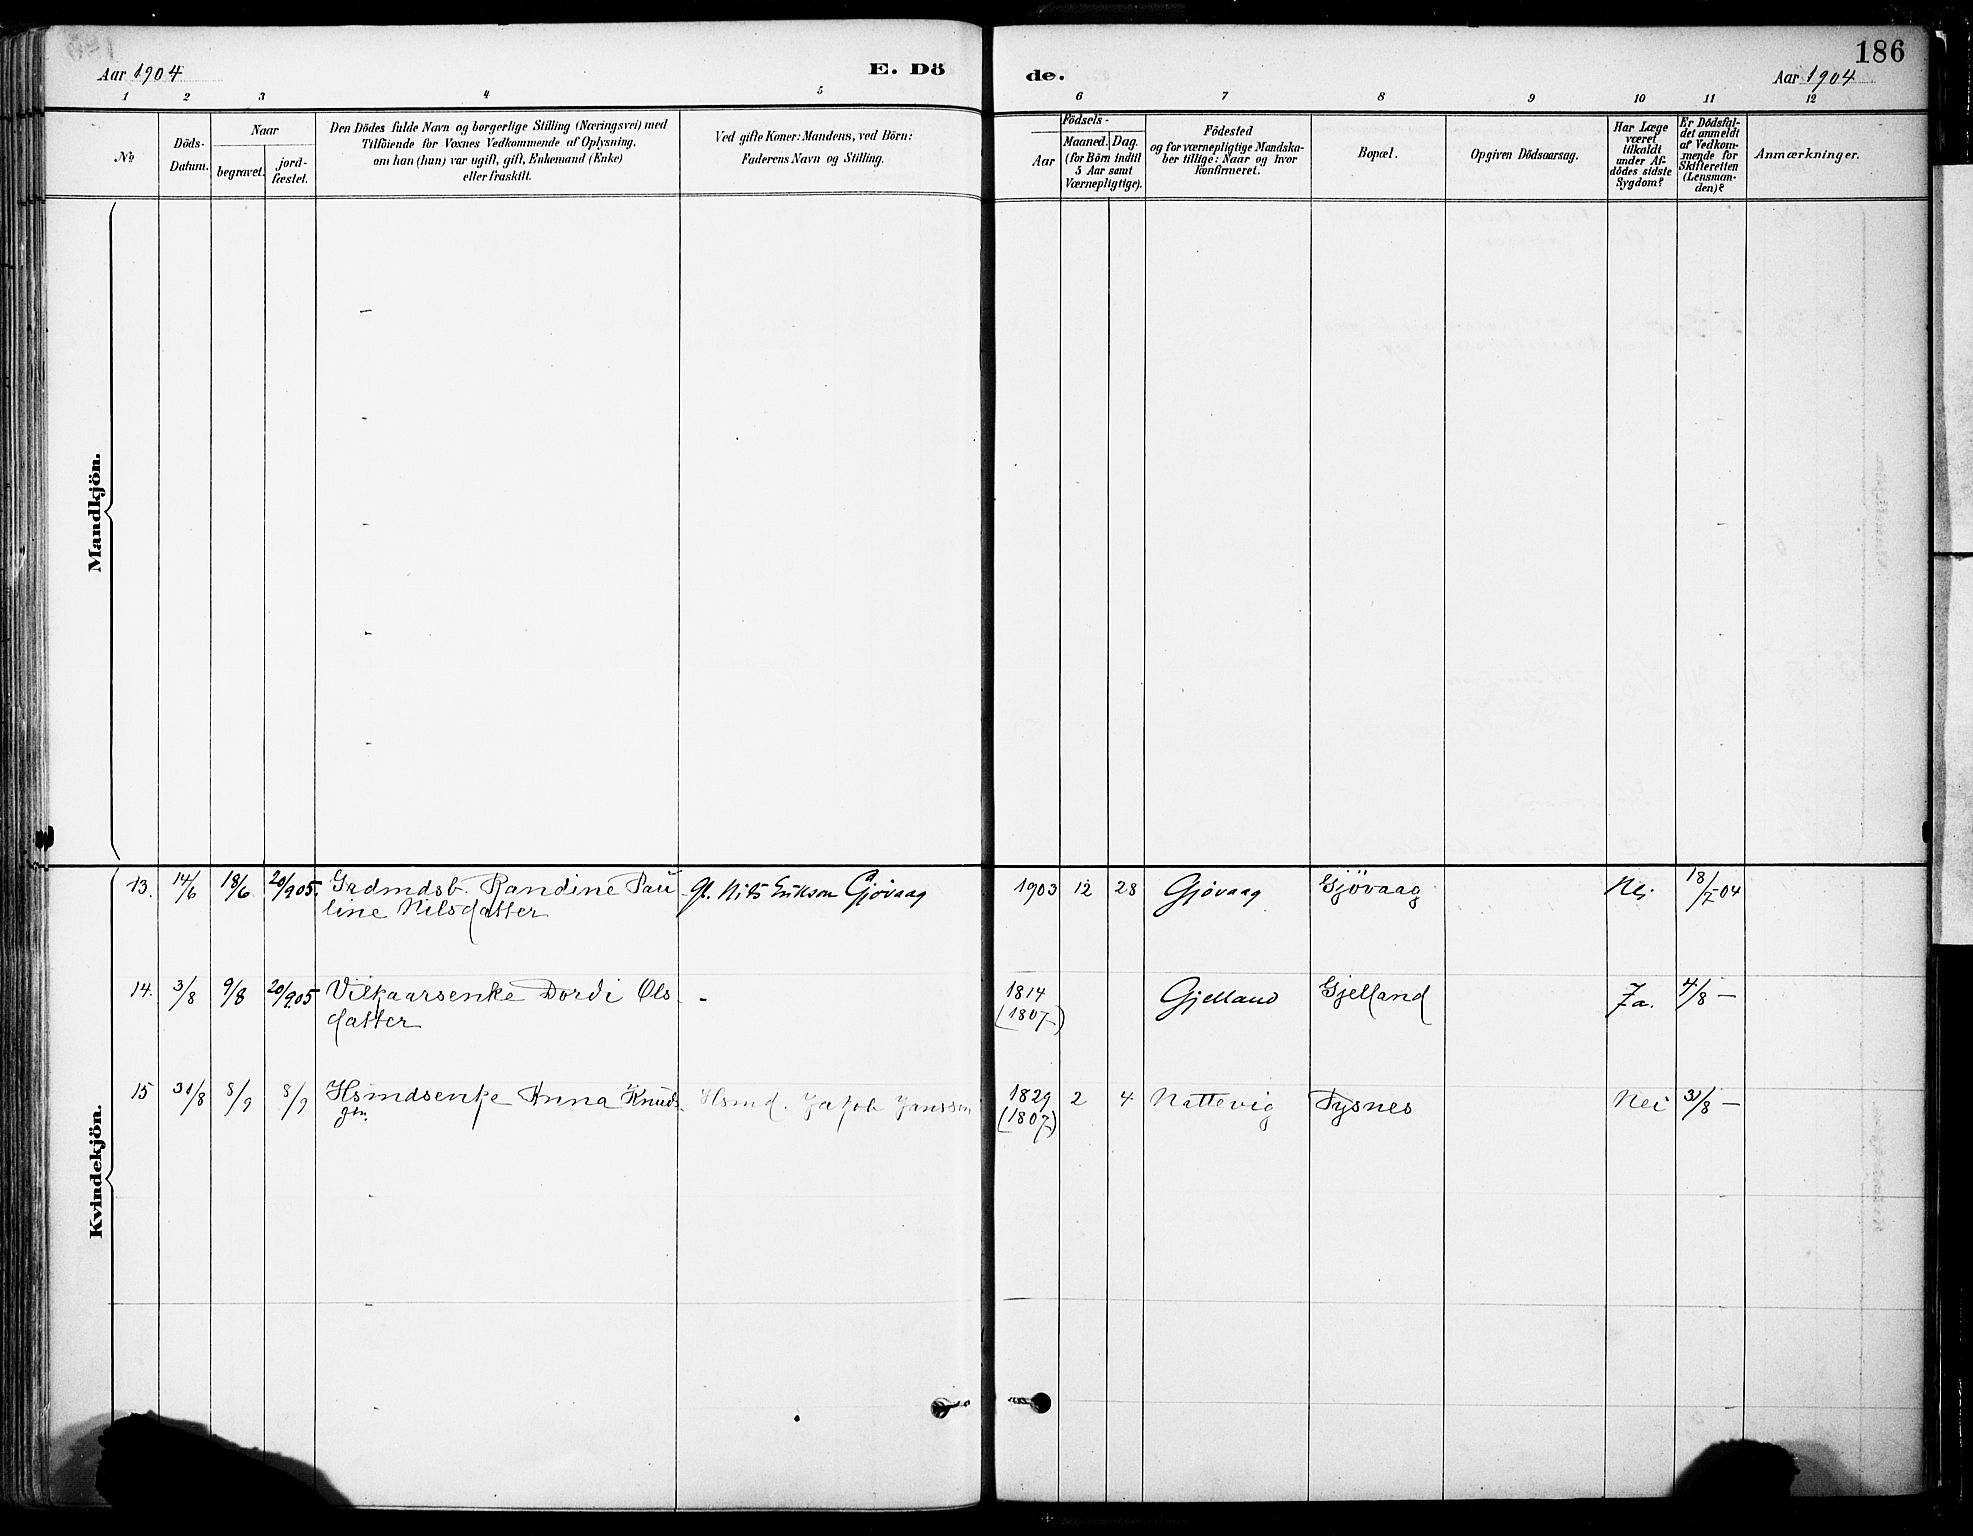 Aar 1904
E. Dö
de.
186
Aar 1904
1 2 3 4 5 6 7 8 9 10 11 12
No
Döds-
Datum.
Naar
begravet.
jord-
fæstet.
Den Dödes fulde Navn og borgerlige Stilling (Næringsvei) med
Tilföiende for Voxnes Vedkommende af Oplysning,
om han (hun) var ugift, gift, Enkemand (Enke)
eller fraskilt.
Ved gifte Koner: Mandens, ved Börn:
Faderens Navn og Stilling.
Födsels-
Aar
Maaned.
Dag.
(for Börn indtil
5 Aar samt
Værnepligtige).
Födested
og for værnepligtige Mandska-
ber tillige: Naar og hvor
konfirmeret.
Bopæl.
Opgiven Dödsaarsag.
Har Læge
været
tilkaldt
under Af-
dödes sidste
Sygdom?
Er Dödsfal-
det anmeldt
af Vedkom-
mende for
Skifteretten
(Lensman-
den)?
Anmærkninger.
Mandkjön.
Kvindekjön.
13. 14/6 18/6 20/9 05. Grdmdsb. Randine Pau Gl. Nils Erikson Gjövaag 1903 12 28 Gjövaag Gjövaag Nei 18/7 04
line Nilsdatter
14. 3/8 9/8 20/9 05 Vilkaarsenke Dordi Ols - 1814 Gjelland Gjelland Ja. 4/8 —
datter (1807)
15 31/8 8/9 8/9 Hsmdsenke Anna Knuds- Hsmd. Jakob Janssen 1829 2 4 Nattevig Tysnes Nei 31/8 —
(1807)